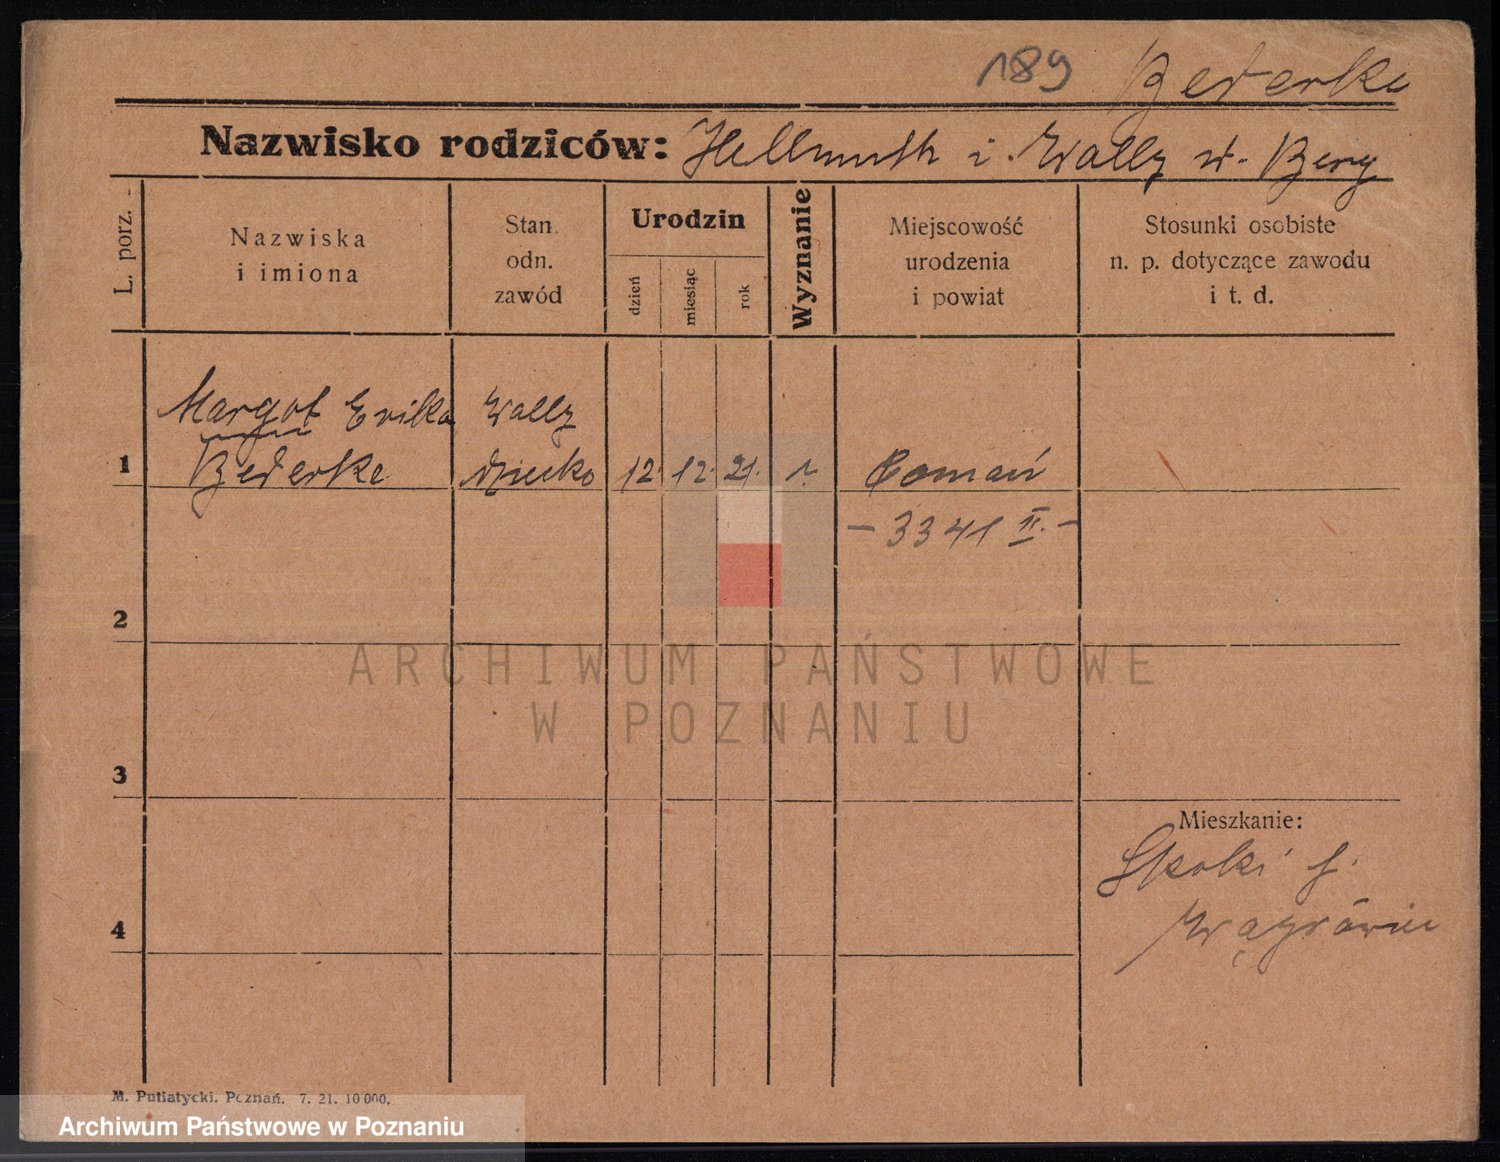 189 Bederke
Nazwisko rodziców: Hellmuth i Wally d. Berg
L. porz.
Nazwiska
i imiona
Stan.
odn.
zawód
Urodzin
dzień
miesiąc
rok
Wyznanie
Miejscowość
urodzenia
i powiat
Stosunki osobiste
n. p. dotyczące zawodu
i t. d.
Margot Erika Wally
1 Bederke dziecko 12. 12. 21.
- 3341 II. -
2
ARCHIWUM PAŃSTWOWE
W POZNANIU
3
Mieszkanie:
Skoki
4 Wągrówiec
M. Putiatycki. Poznań. 7. 21. 10 000.
Archiwum Państwowe w Poznaniu